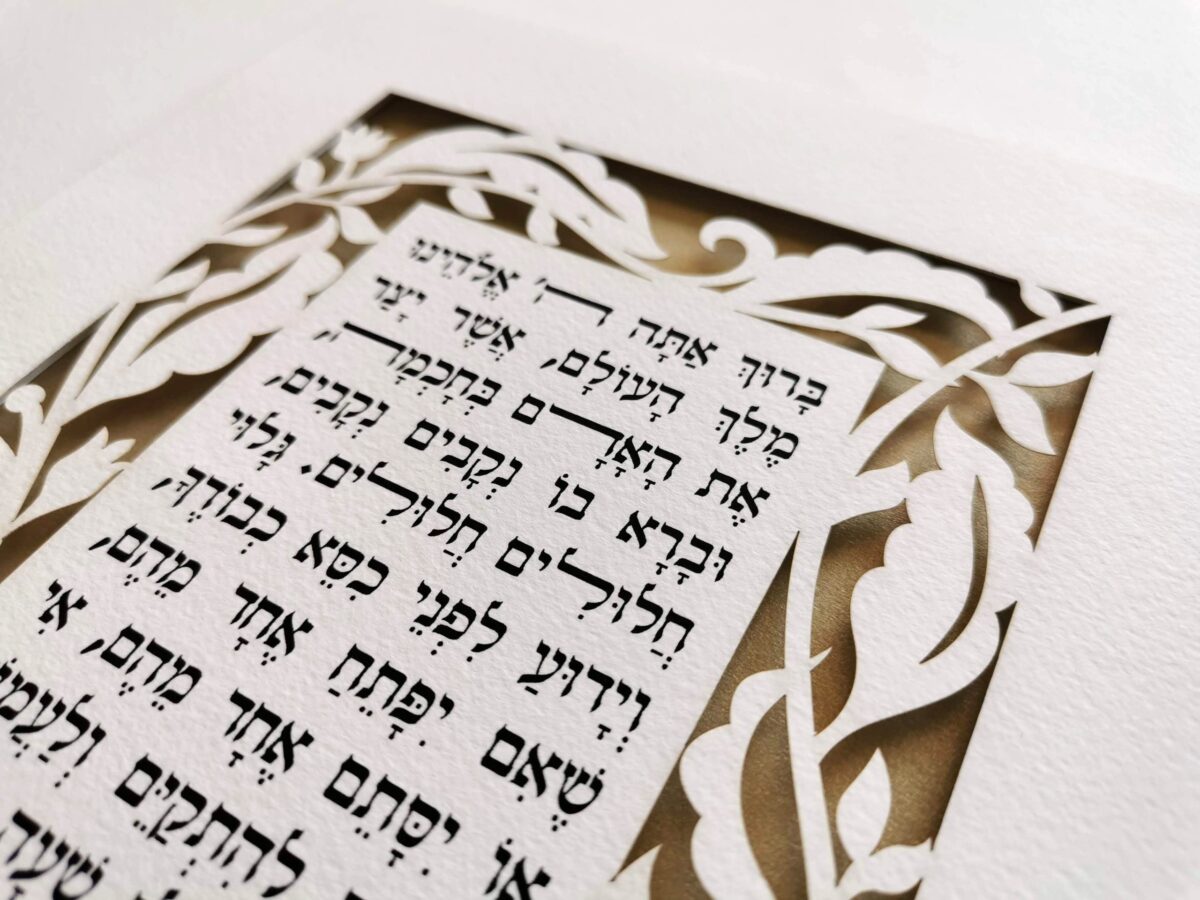 בָּרוּךְ אַתָּה ה' אֱלֹהֵינוּ
מֶלֶךְ הָעוֹלָם, אֲשֶׁר יָצַר
אֶת הָאָדָם בְּחָכְמָה,
וּבָרָא בוֹ נְקָבִים נְקָבִים,
חֲלוּלִים חֲלוּלִים. גָּלוּי
וְיָדוּעַ לִפְנֵי כִסֵּא כְבוֹדֶךָ,
שֶׁאִם יִפָּתֵחַ אֶחָד מֵהֶם,
אוֹ יִסָּתֵם אֶחָד מֵהֶם,
לְהִתְקַיֵּם
שָׁעָה